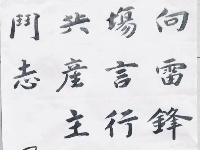 向雷鋒
塲言行
共產主
鬥志